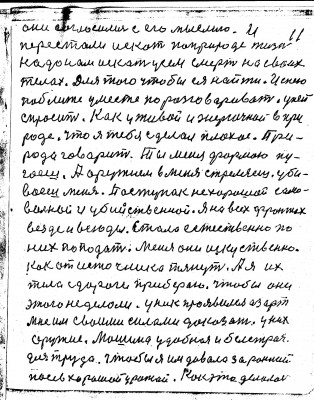 они согласились с его мыслию. И
перестали искат по природе жизн
на домам искат усем смерт на своих
телах. Для того чтобы ся найти. И ясно
поблизе уместе поразговариват. у ней
спросит. Как у живой и энергичной в при
роде. что я тебя сделал плохое. При-
рода говорит. Ти меня формою пу-
гаеш. А оружием в меня стреляеш. уби-
ваеш меня. Поступак нехороший само-
вольной и убийственной. Я на всех фронтах
везде и всюды. Стала естественно по
них попадат. Меня они искуственно.
как от источника тянут. А я их
тела с дороги прибераю. чтобы они
этого не делали. у них проявился азарт
мне им своими силами доказат. у них
оружие. Машина удобная и быстрая.
для труда. чтобы я им давала за ранний
посев хороший урожай. Как это делалос
11